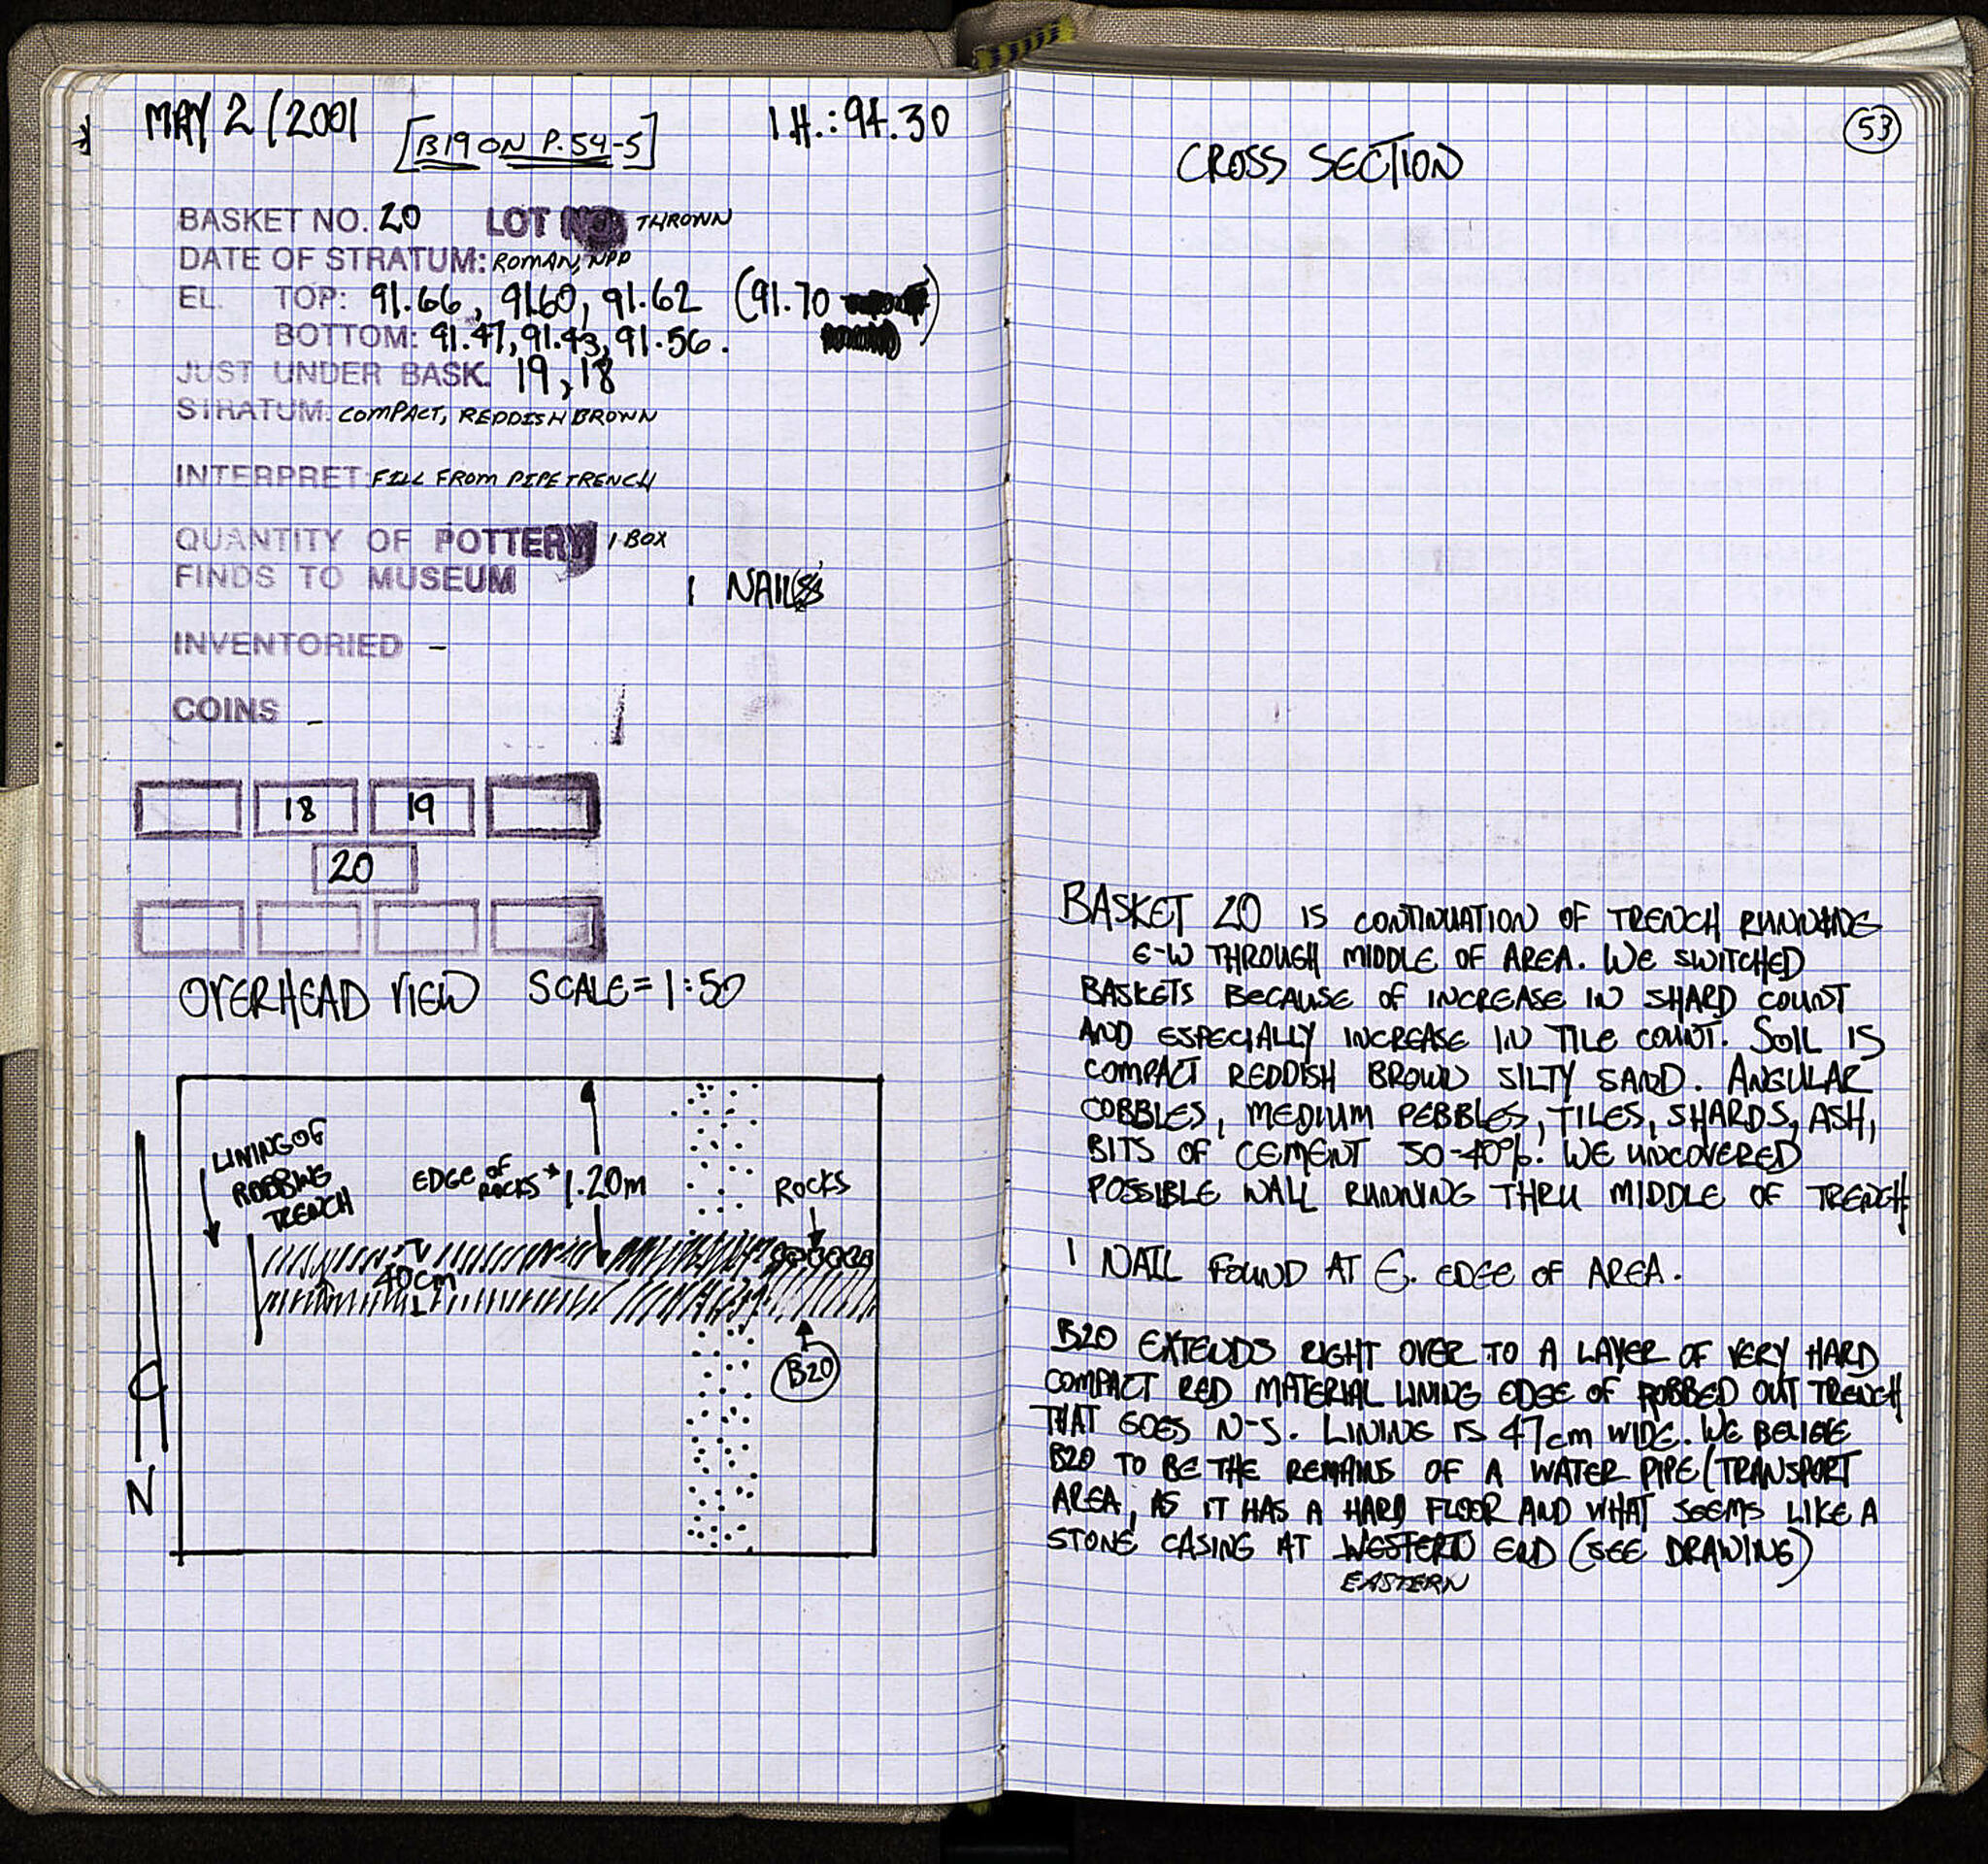 MAY 2/2001
[B19 ON P.54-5]
I.H.: 94.30
BASKET NO. 20 LOT NO. THROWN
DATE OF STRATUM: ROMAN, NPD
EL. TOP: 91.66, 91.60, 91.62 (91.70)
BOTTOM: 91.47, 91.43, 91.56.
JUST UNDER BASK. 19, 18
STRATUM: COMPACT, REDDISH BROWN
INTERPRET: FILL FROM PIPE TRENCH
QUANTITY OF POTTERY 1 BOX
FINDS TO MUSEUM 1 NAIL
INVENTORIED -
COINS -
18 19
20
OVERHEAD VIEW SCALE = 1:50
LINING OF
ROBBING
TRENCH
EDGE OF
ROCKS
1.20m
ROCKS
40cm
B20
N
53
CROSS SECTION
BASKET 20 IS CONTINUATION OF TRENCH RUNNING
E-W THROUGH MIDDLE OF AREA. WE SWITCHED
BASKETS BECAUSE OF INCREASE IN SHARD COUNT
AND ESPECIALLY INCREASE IN TILE COUNT. SOIL IS
COMPACT REDDISH BROWN SILTY SAND. ANGULAR
COBBLES, MEDIUM PEBBLES, TILES, SHARDS, ASH,
BITS OF CEMENT 30-40%. WE UNCOVERED
POSSIBLE WALL RUNNING THRU MIDDLE OF TRENCH.
1 NAIL FOUND AT E. EDGE OF AREA.
B20 EXTENDS RIGHT OVER TO A LAYER OF VERY HARD
COMPACT RED MATERIAL LINING EDGE OF ROBBED OUT TRENCH
THAT GOES N-S. LINING IS 47cm WIDE. WE BELIEVE
B20 TO BE THE REMAINS OF A WATER PIPE/TRANSPORT
AREA, AS IT HAS A HARD FLOOR AND WHAT SEEMS LIKE A
STONE CASING AT WESTERN END (SEE DRAWING)
EASTERN